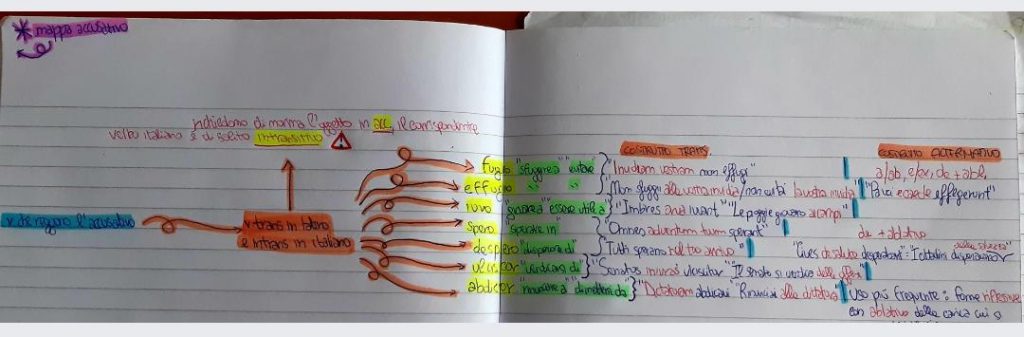 * mappa accusativo
richiedono di norma l'oggetto in acc, il corrispondente
verbo italiano è di solito intransitivo
v. che reggono l'accusativo
v. trans in latino
e intrans in italiano
COSTRUTTO TRANS.
COSTRUTTO ALTERNATIVO
fugio "sfuggire a" "evitare" } "Invidiam vestram non effugi" a/ab, e/ex, de + abl,
effugio " " " " } "Non fuggì alla vostra invidia/non evitò la vostra invidia" "Pauci ex ea caede effugerunt"
iuvo "giovare a" "essere utile a" } "Imbres arva iuvant" "Le piogge giovano ai campi"
spero "sperare in" { "Omnes adventum tuum sperant" de + ablativo
despero "disperare di" { "Tutti sperano nel tuo arrivo" "Cives de salute desperabant": I cittadini disperavano della salvezza
ulciscor "vendicarsi di" } "Senatus iniurias ulciscitur" "Il senato si vendica delle offese"
"rinunciare a" "dimettersi da" } "Dictaturam abdicavi" "Rinunciai alla dittatura" Uso più frequente: forme riflessive
con ablativo della carica cui si